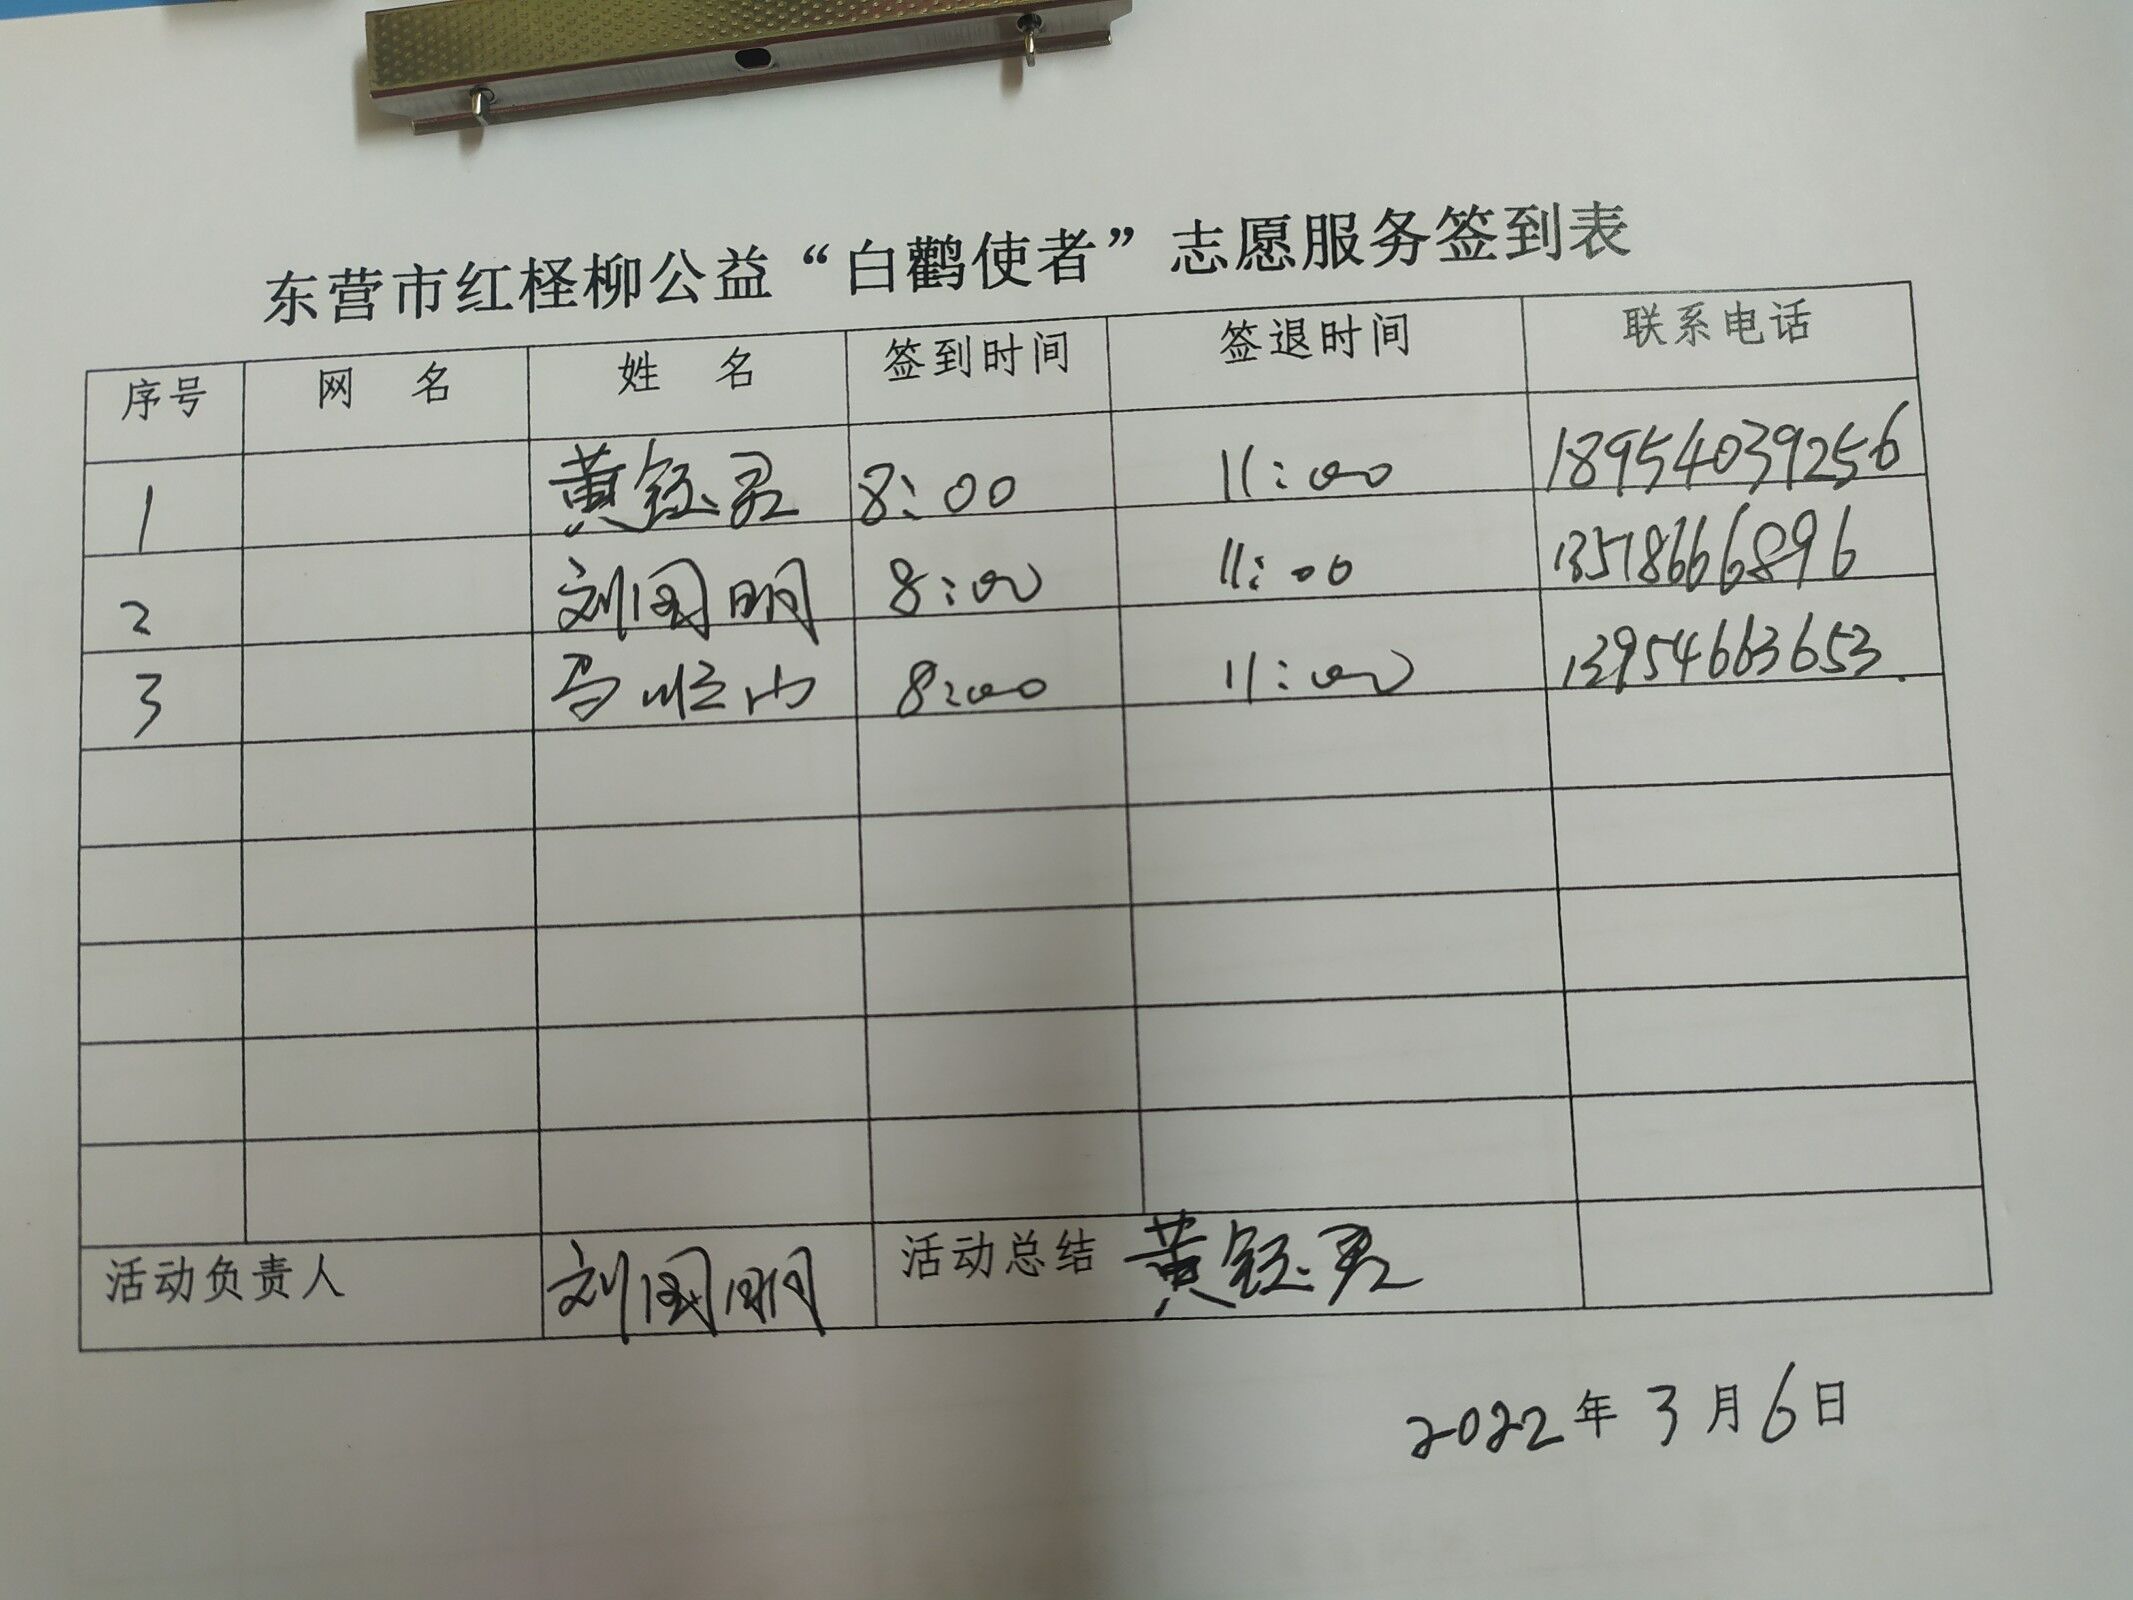 东营市红柽柳公益“白鹳使者”志愿服务签到表
序号 网 名 姓 名 签到时间 签退时间 联系电话
1 黄钰君 8:00 11:00 18954039256
2 刘国明 8:00 11:00 13518666896
3 马顺山 8:00 11:00 13954663653
活动负责人 刘国明 活动总结 黄钰君
2022年3月6日